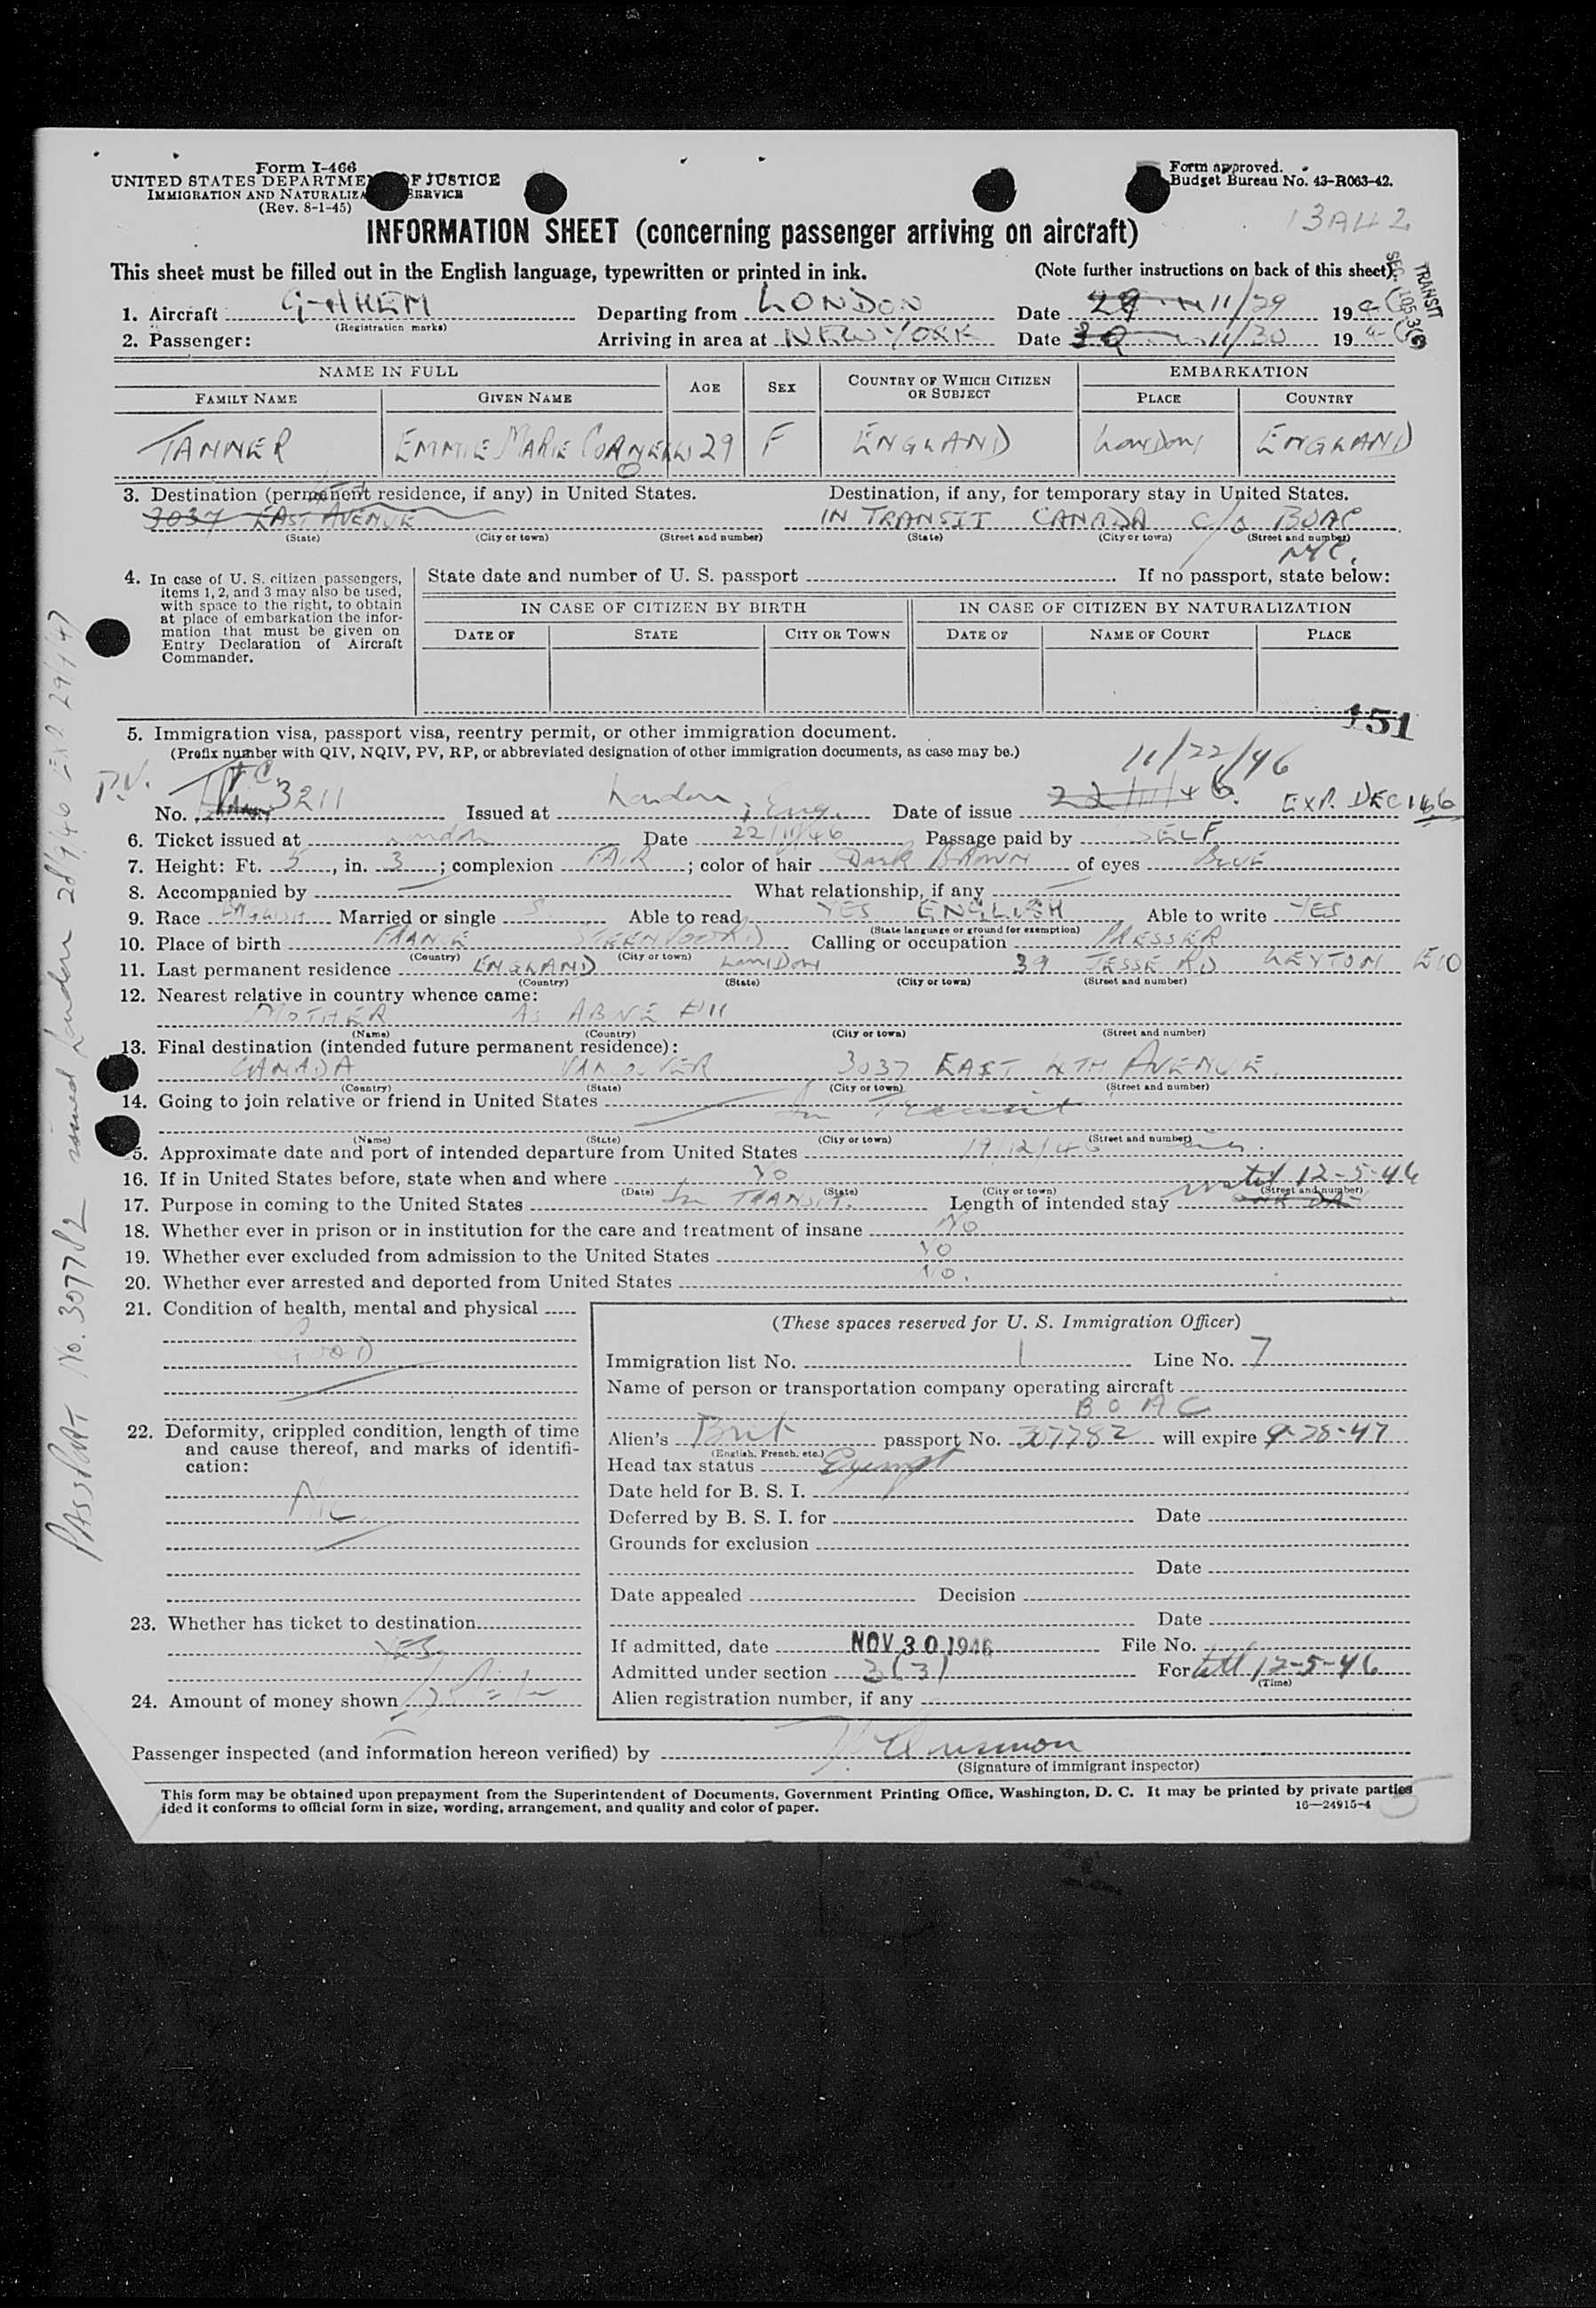 Form I-466
UNITED STATES DEPARTMENT OF JUSTICE
IMMIGRATION AND NATURALIZATION SERVICE
(Rev. 8-1-45)
Form approved.
Budget Bureau No. 43-R063-42.
13AH2
INFORMATION SHEET (concerning passenger arriving on aircraft)
This sheet must be filled out in the English language, typewritten or printed in ink. (Note further instructions on back of this sheet)
TRANSIT
SEC. 105.3(
1. Aircraft G-AHEM Departing from LONDON Date 29 11/29 1946
(Registration marks)
2. Passenger: Arriving in area at NEW YORK Date 30 11/30 1946
NAME IN FULL AGE SEX COUNTRY OF WHICH CITIZEN OR SUBJECT EMBARKATION
FAMILY NAME GIVEN NAME PLACE COUNTRY
TANNER EMMIE MARIE 29 F ENGLAND LONDON ENGLAND
3. Destination (permanent residence, if any) in United States. Destination, if any, for temporary stay in United States.
3037 EAST AVENUE IN TRANSIT CANADA c/o BOAC
(State) (City or town) (Street and number) (State) (City or town) (Street and number)
NYC.
4. In case of U. S. citizen passengers, items 1, 2, and 3 may also be used, with space to the right, to obtain at place of embarkation the information that must be given on Entry Declaration of Aircraft Commander.
State date and number of U. S. passport If no passport, state below:
IN CASE OF CITIZEN BY BIRTH IN CASE OF CITIZEN BY NATURALIZATION
DATE OF STATE CITY OR TOWN DATE OF NAME OF COURT PLACE
151
5. Immigration visa, passport visa, reentry permit, or other immigration document.
(Prefix number with QIV, NQIV, PV, RP, or abbreviated designation of other immigration documents, as case may be.)
11/22/46
P.V. T.C.
No. 3211 Issued at London, Eng. Date of issue 22/11/46 EXP. DEC 1946
6. Ticket issued at London Date 22/11/46 Passage paid by SELF
7. Height: Ft. 5, in. 3; complexion FAIR; color of hair Dark BROWN of eyes BLUE
8. Accompanied by — What relationship, if any —
9. Race ENGLISH Married or single S. Able to read YES ENGLISH Able to write YES
(State language or ground for exemption)
10. Place of birth FRANCE STEENVOORD Calling or occupation PRESSER
(Country) (City or town)
11. Last permanent residence ENGLAND LONDON 39 JESSE RD LEYTON E10
(Country) (State) (City or town) (Street and number)
12. Nearest relative in country whence came:
MOTHER AS ABOVE #11
(Name) (Country) (City or town) (Street and number)
13. Final destination (intended future permanent residence):
CANADA VANCOUVER 3037 EAST 4TH AVENUE.
(Country) (State) (City or town) (Street and number)
14. Going to join relative or friend in United States In Transit
(Name) (State) (City or town) (Street and number)
15. Approximate date and port of intended departure from United States 19/12/46
16. If in United States before, state when and where NO until 12-5-46
(Date) (State) (City or town) (Street and number)
17. Purpose in coming to the United States In TRANSIT. Length of intended stay
18. Whether ever in prison or in institution for the care and treatment of insane No
19. Whether ever excluded from admission to the United States No
20. Whether ever arrested and deported from United States No.
21. Condition of health, mental and physical
GOOD
22. Deformity, crippled condition, length of time and cause thereof, and marks of identification:
NIL
23. Whether has ticket to destination
YES
24. Amount of money shown
(These spaces reserved for U. S. Immigration Officer)
Immigration list No. 1 Line No. 7
Name of person or transportation company operating aircraft
BOAC
Alien's Brit passport No. 307782 will expire 9-28-47
(English, French, etc.)
Head tax status Exempt
Date held for B. S. I.
Deferred by B. S. I. for Date
Grounds for exclusion
Date
Date appealed Decision
Date
If admitted, date NOV 30 1946 File No.
Admitted under section 3(3) For till 12-5-46
(Time)
Alien registration number, if any
Passenger inspected (and information hereon verified) by
(Signature of immigrant inspector)
This form may be obtained upon prepayment from the Superintendent of Documents, Government Printing Office, Washington, D. C. It may be printed by private parties
ided it conforms to official form in size, wording, arrangement, and quality and color of paper. 16—24915-4
5
PASSPORT No. 307782 issued London 28/9/46 EXP 29/9/47